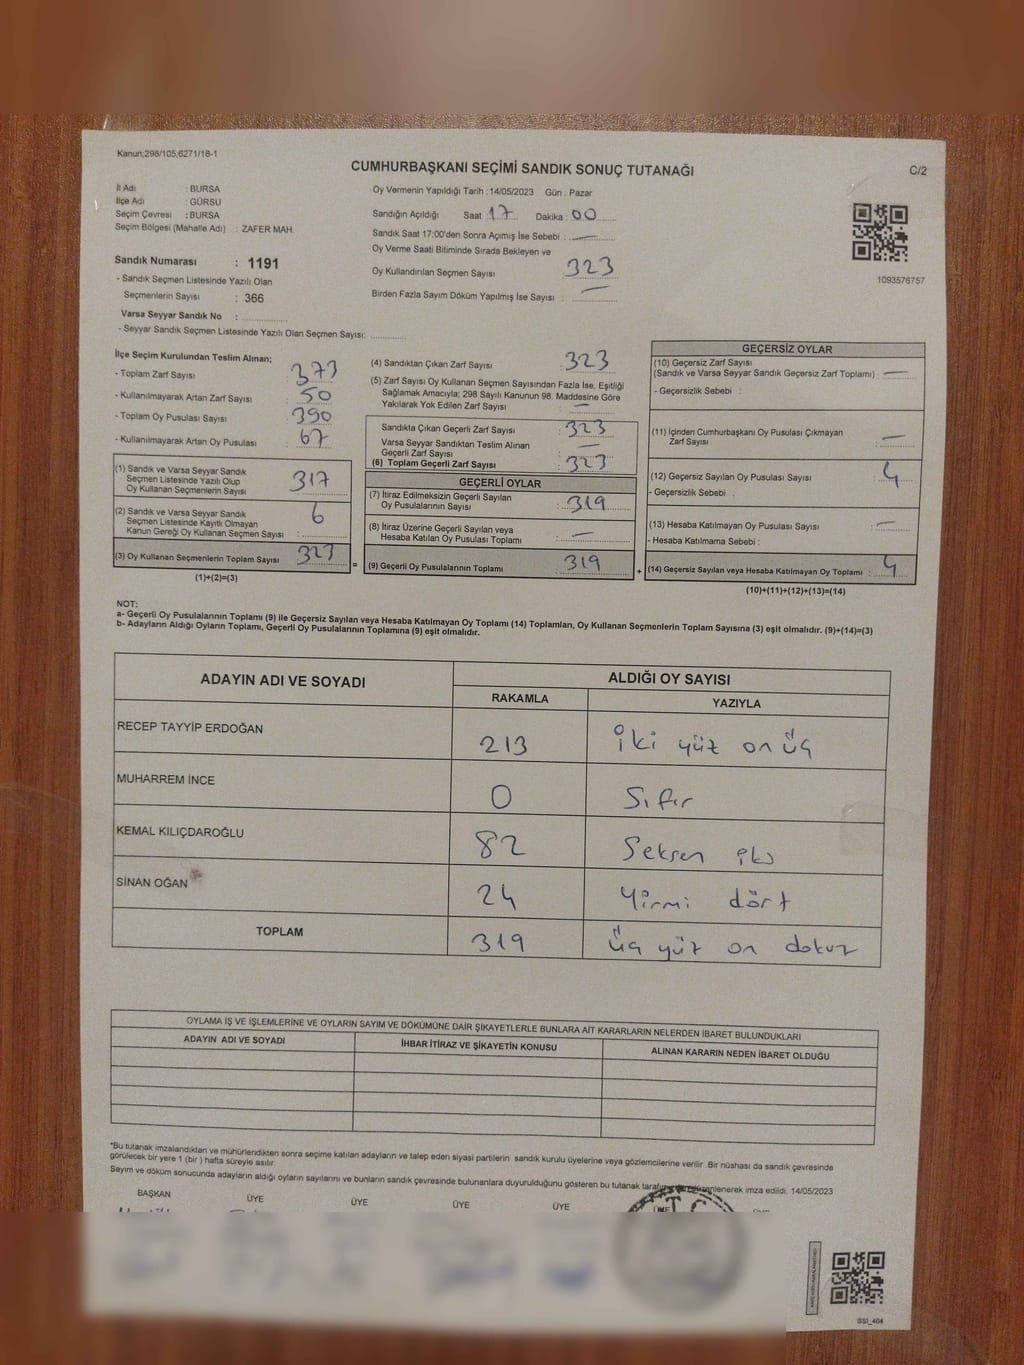 Kanun;298/105,6271/18-1
CUMHURBAŞKANI SEÇİMİ SANDIK SONUÇ TUTANAĞI
C/2
İl Adı : BURSA
İlçe Adı : GÜRSU
Seçim Çevresi : BURSA
Seçim Bölgesi (Mahalle Adı) : ZAFER MAH.
Oy Vermenin Yapıldığı Tarih : 14/05/2023 Gün : Pazar
Sandığın Açıldığı Saat : 17 Dakika : 00
Sandık Saat 17:00'den Sonra Açımış İse Sebebi : —
Oy Verme Saati Bitiminde Sırada Bekleyen ve
Oy Kullandırılan Seçmen Sayısı 323
Birden Fazla Sayım Döküm Yapılmış İse Sayısı : —
1093576757
Sandık Numarası : 1191
- Sandık Seçmen Listesinde Yazılı Olan
Seçmenlerin Sayısı : 366
Varsa Seyyar Sandık No :
- Seyyar Sandık Seçmen Listesinde Yazılı Olan Seçmen Sayısı:
İlçe Seçim Kurulundan Teslim Alınan;
- Toplam Zarf Sayısı : 373
- Kullanılmayarak Artan Zarf Sayısı : 50
- Toplam Oy Pusulası Sayısı : 390
- Kullanılmayarak Artan Oy Pusulası : 67
(1) Sandık ve Varsa Seyyar Sandık
Seçmen Listesinde Yazılı Olup
Oy Kullanan Seçmenlerin Sayısı : 317
(2) Sandık ve Varsa Seyyar Sandık
Seçmen Listesinde Kayıtlı Olmayan
Kanun Gereği Oy Kullanan Seçmen Sayısı : 6
(3) Oy Kullanan Seçmenlerin Toplam Sayısı : 323
(1)+(2)=(3)
=
(4) Sandıktan Çıkan Zarf Sayısı : 323
(5) Zarf Sayısı Oy Kullanan Seçmen Sayısından Fazla İse, Eşitliği
Sağlamak Amacıyla; 298 Sayılı Kanunun 98. Maddesine Göre
Yakılarak Yok Edilen Zarf Sayısı : —
Sandıkta Çıkan Geçerli Zarf Sayısı : 323
Varsa Seyyar Sandıktan Teslim Alınan
Geçerli Zarf Sayısı : —
(6) Toplam Geçerli Zarf Sayısı : 323
GEÇERLİ OYLAR
(7) İtiraz Edilmeksizin Geçerli Sayılan
Oy Pusulalarının Sayısı : 319
(8) İtiraz Üzerine Geçerli Sayılan veya
Hesaba Katılan Oy Pusulası Toplamı : —
(9) Geçerli Oy Pusulalarının Toplamı : 319
+
GEÇERSİZ OYLAR
(10) Geçersiz Zarf Sayısı
(Sandık ve Varsa Seyyar Sandık Geçersiz Zarf Toplamı) : —
- Geçersizlik Sebebi :
(11) İçinden Cumhurbaşkanı Oy Pusulası Çıkmayan
Zarf Sayısı : —
(12) Geçersiz Sayılan Oy Pusulası Sayısı : 4
- Geçersizlik Sebebi :
(13) Hesaba Katılmayan Oy Pusulası Sayısı : —
- Hesaba Katılmama Sebebi :
(14) Geçersiz Sayılan veya Hesaba Katılmayan Oy Toplamı : 4
(10)+(11)+(12)+(13)=(14)
NOT:
a- Geçerli Oy Pusulalarının Toplamı (9) ile Geçersiz Sayılan veya Hesaba Katılmayan Oy Toplamı (14) Toplamları, Oy Kullanan Seçmenlerin Toplam Sayısına (3) eşit olmalıdır. (9)+(14)=(3)
b- Adayların Aldığı Oyların Toplamı, Geçerli Oy Pusulalarının Toplamına (9) eşit olmalıdır.
ADAYIN ADI VE SOYADI ALDIĞI OY SAYISI
RAKAMLA YAZIYLA
RECEP TAYYİP ERDOĞAN 213 iki yüz on üç
MUHARREM İNCE 0 Sıfır
KEMAL KILIÇDAROĞLU 82 Seksen iki
SİNAN OĞAN 24 Yirmi dört
TOPLAM 319 üç yüz on dokuz
OYLAMA İŞ VE İŞLEMLERİNE VE OYLARIN SAYIM VE DÖKÜMÜNE DAİR ŞİKAYETLERLE BUNLARA AİT KARARLARIN NELERDEN İBARET BULUNDUKLARI
ADAYIN ADI VE SOYADI İHBAR İTİRAZ VE ŞİKAYETİN KONUSU ALINAN KARARIN NEDEN İBARET OLDUĞU
*Bu tutanak imzalandıktan ve mühürlendikten sonra seçime katılan adayların ve talep eden siyasi partilerin sandık kurulu üyelerine veya gözlemcilerine verilir .Bir nüshası da sandık çevresinde
görülecek bir yere 1 (bir ) hafta süreyle asılır.
Sayım ve döküm sonucunda adayların aldığı oyların sayılarını ve bunların sandık çevresinde bulunanlara duyurulduğunu gösteren bu tutanak imza edildi. 14/05/2023
BAŞKAN ÜYE ÜYE ÜYE ÜYE
T.C
SSI_404